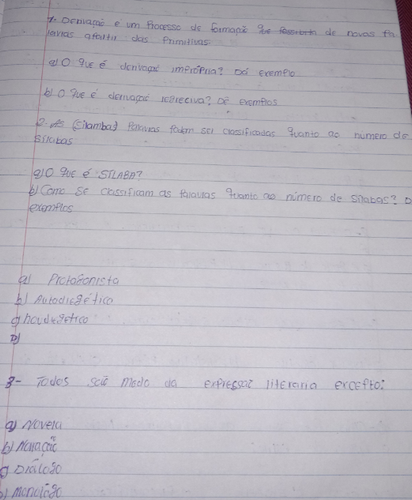 1. Derivação é um Processo de formação de novas Pa
lavras apartir das Primitivas
a) O que é derivação imprópria? Dê exemplo
b) O que é derivação regreciva? Dê exemplos
2. Palavras Podem ser classificadas quanto ao número de
silabas
a) O que é SILABA?
b) Como se classificam as Palavras quanto ao número de silabas? D
exemplos
a) Protagonista
b) Autodiegético
D)
3- Todos são modo da expressão literaria excepto:
a) Novela
b) Naração
c) Diálogo
D) Monólogo